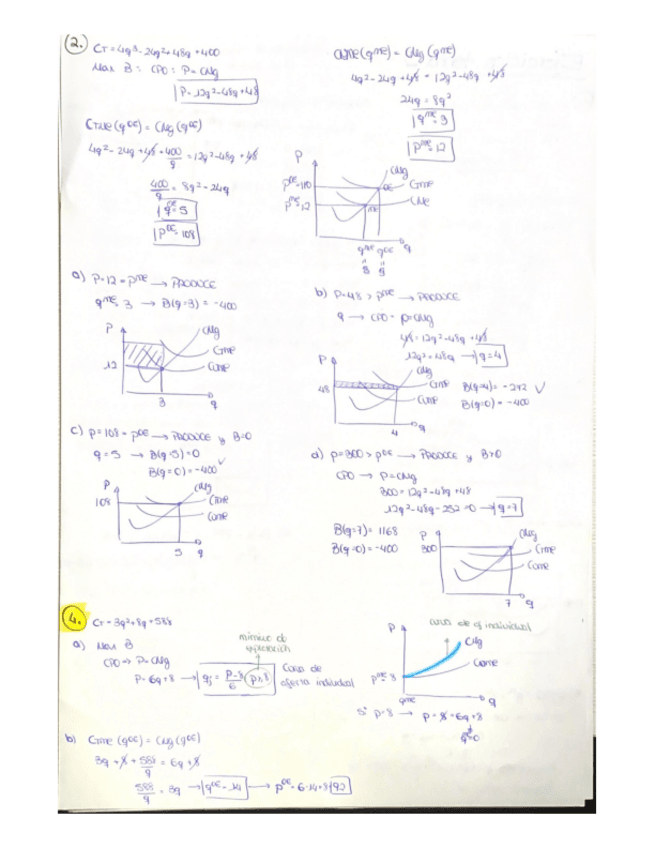 2.
CT = 4q³ - 24q² + 48q + 400
Max B : CPO : P = CMg
P = 12q² - 48q + 48
CTMe (qOE) = CMg (qOE)
4q² - 24q + 48 + 400/q = 12q² - 48q + 48
400/q = 8q² - 24q
qOE = 5
pOE = 108
CVMe (qME) = CMg (qME)
4q² - 24q + 48 = 12q² - 48q + 48
24q = 8q²
qME = 3
pME = 12
P
CMg
CTMe
CVMe
pME = 12
OE
ME
qME qOE q
a) P = 12 = pME → PRODUCE
qME = 3 → B(q=3) = -400
P
CMg
CTMe
CVMe
12
3
q
b) P = 48 > pME → PRODUCE
q → CPO → p = CMg
48 = 12q² - 48q + 48
12q² = 48q → q = 4
P
CMg
CTMe
CVMe
48
4
q
B(q=4) = -272 ✓
B(q=0) = -400
c) p = 108 = pOE → PRODUCE y B=0
q = 5 → B(q=5) = 0 ✓
B(q=0) = -400
P
CMg
CTMe
CVMe
108
5
q
d) p = 300 > pOE → PRODUCE y B>0
CPO → P = CMg
300 = 12q² - 48q + 48
12q² - 48q - 252 = 0 → q = 7
B(q=7) = 1168
B(q=0) = -400
P
CMg
CTMe
CVMe
300
7
q
4.
CT = 3q² + 8q + 588
a) Max B
CPO → P = CMg
P = 6q + 8 → qi = P-8/6 p≥8
mínimo de explotación
Curva de
oferta individual
P
curva de of individual
CMg
CVMe
pME = 8
qME
q
Si p = 8 → p = 8 = 6q + 8
q = 0
b) CTMe (qOE) = CMg (qOE)
3q + 8 + 588/q = 6q + 8
588/q = 3q → qOE = 14 → pOE = 6·14 + 8 = 92